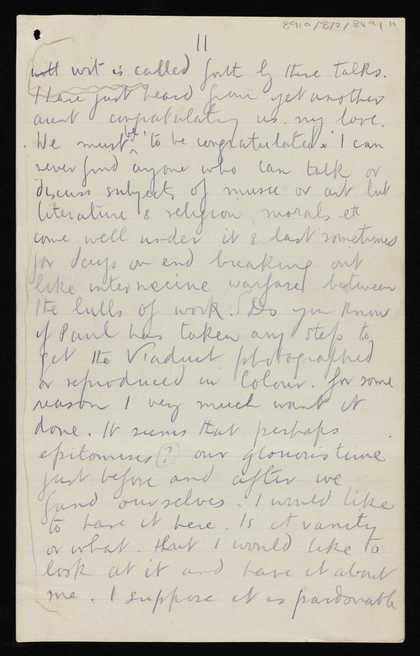 11
wit is called forth by these talks.
I have just heard from yet another
aunt congratulating us my love.
We must be 'to be congratulated'. I can
never find anyone who can talk or
discuss subjects of music or art but
literature & religion, morals etc
come well under it & last sometimes
for days on end breaking out
like internecine warfare between
the lulls of work. Do you know
if Paul has taken any steps to
get the Viaduct photographed
or reproduced in colour. for some
reason I very much want it
done. It seems that perhaps
epitomises (?) our glorious time
just before and after we
found ourselves. I would like
to have it here. Is it vanity
or what that I would like to
look at it and have it about
me. I suppose it is pardonable